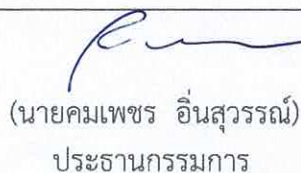 (นายคมเพชร อิ่นสุวรรณ์)
ประธานกรรมการ